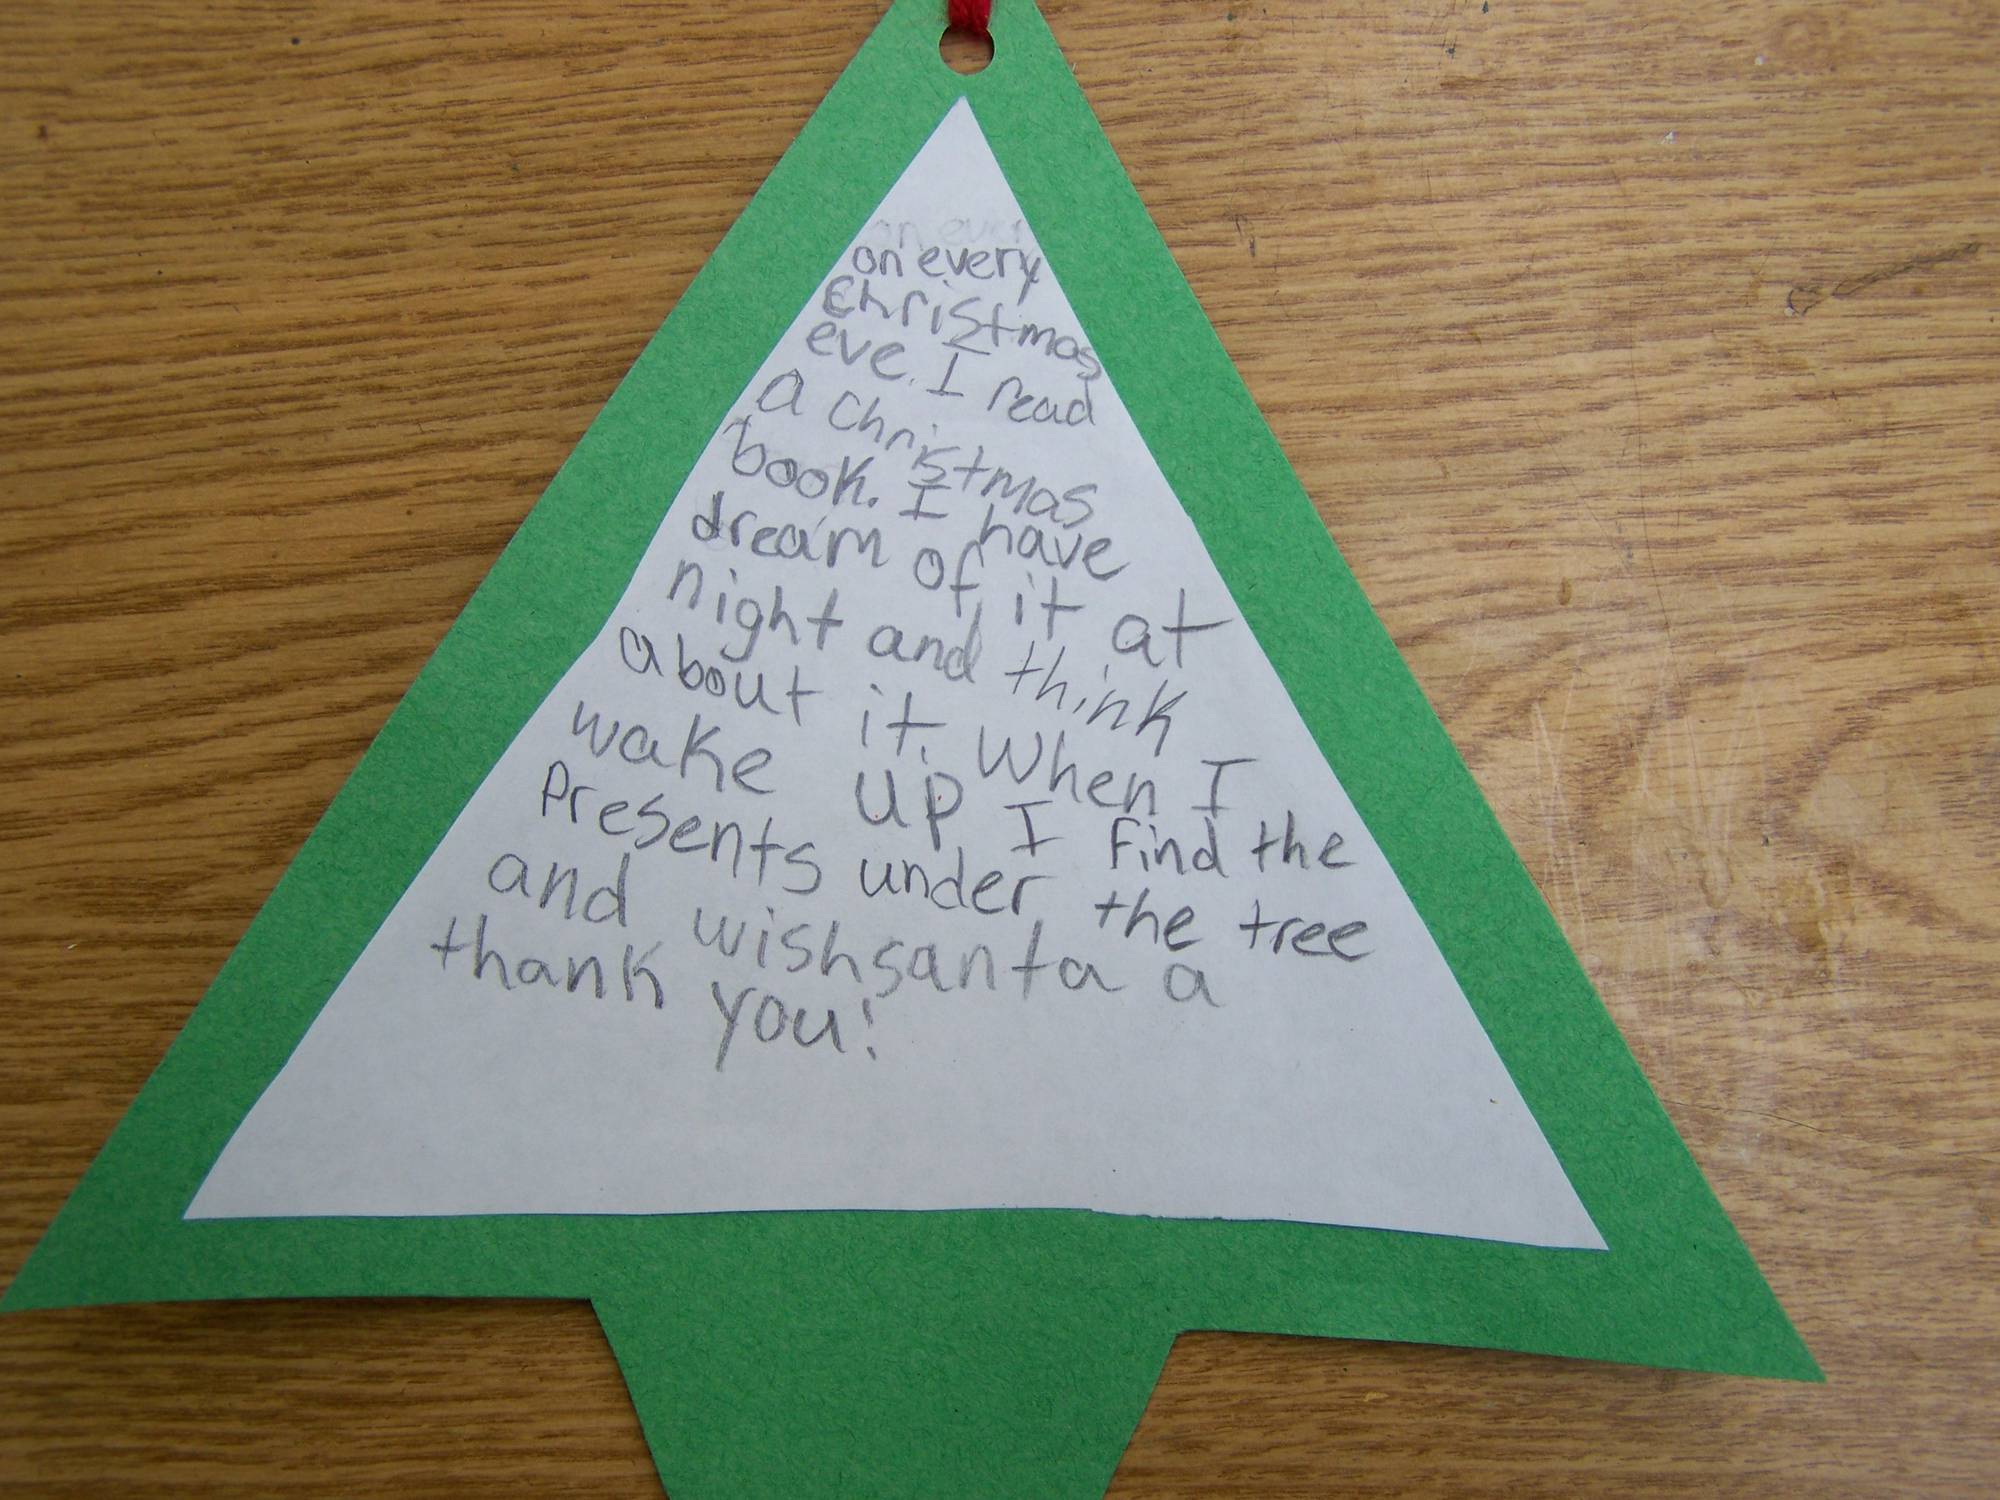 on every
on every
Christmas
eve. I read
a Christmas
book. I have
dream of it at
night and think
about it. When I
wake up I find the
Presents under the tree
and wish santa a
thank you!